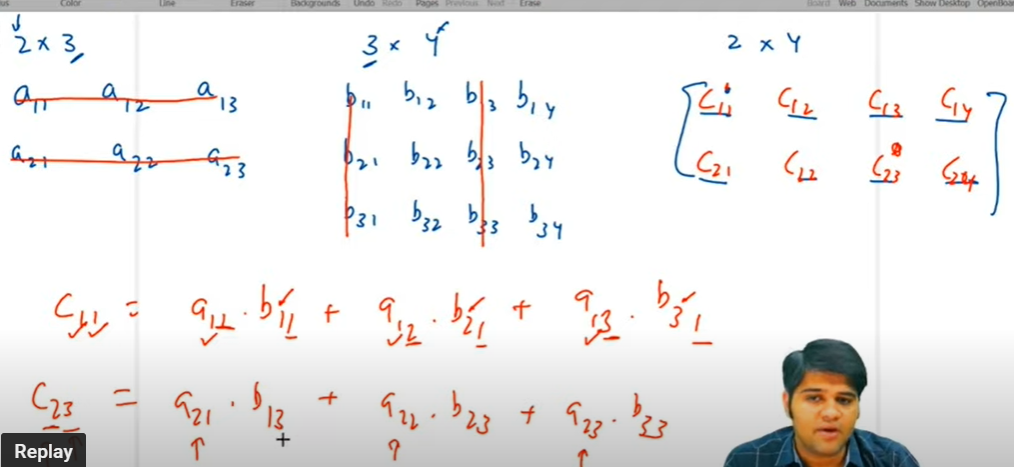 Color Line Eraser Backgrounds Undo Redo Pages Previous Next Erase Board Web Documents Show Desktop OpenBoa
2 x 3 3 x 4 2 x 4
a11 a12 a13 b11 b12 b13 b14 C11 C12 C13 C14
a21 a22 a23 b21 b22 b23 b24 C21 C22 C23 C24
b31 b32 b33 b34
C11 = a11 . b11 + a12 . b21 + a13 . b31
C23 = a21 . b13 + a22 . b23 + a23 . b33
Replay